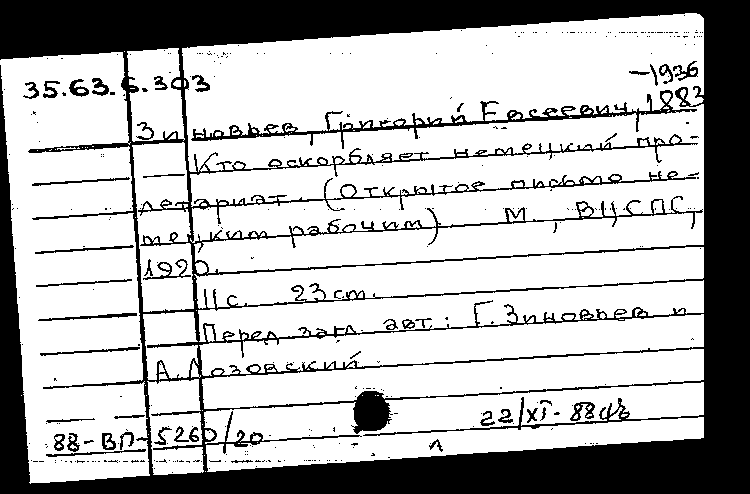 35.63.6.303
-1936
Зиновьев, Григорий Евсеевич, 1883
Кто оскорбляет немецкий про-
летариат. (Открытое письмо не-
мецким рабочим) М., ВЦСПС,
1920.
11 с. 23 см.
Перед загл. авт.: Г. Зиновьев и
А. Лозовский
88-ВП-5260/20
22/XI-88